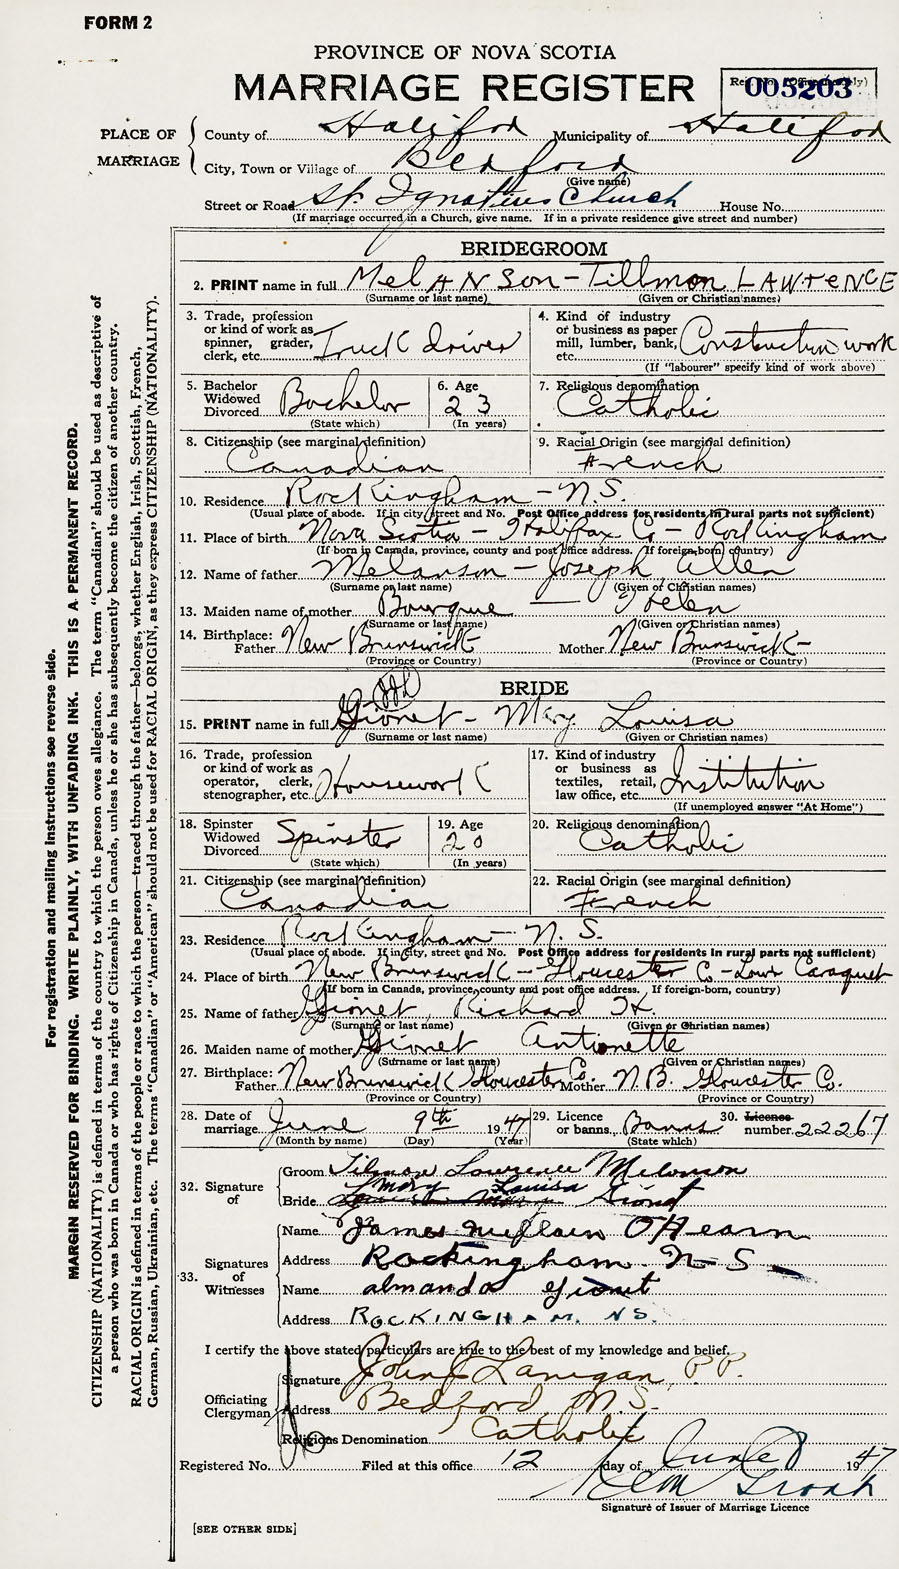 FORM 2
PROVINCE OF NOVA SCOTIA
MARRIAGE REGISTER
005203
PLACE OF MARRIAGE
County of Halifax Municipality of Halifax
City, Town or Village of Bedford
(Give name)
Street or Road St. Ignatius Church House No.
(If marriage occurred in a Church, give name. If in a private residence give street and number)
BRIDEGROOM
2. PRINT name in full MelANSon - Tillmon LAWrENCE
(Surname or last name) (Given or Christian names)
3. Trade, profession or kind of work as spinner, grader, clerk, etc. Truck driver
4. Kind of industry or business as paper mill, lumber, bank, etc. Construction work
(If "labourer" specify kind of work above)
5. Bachelor Widowed Divorced Bachelor
(State which)
6. Age 23
(In years)
7. Religious denomination Catholic
8. Citizenship (see marginal definition) Canadian
9. Racial Origin (see marginal definition) French
10. Residence Rockingham - N.S.
(Usual place of abode. If in city, street and No. Post Office address for residents in rural parts not sufficient)
11. Place of birth Nova Scotia - Halifax Co - Rockingham
(If born in Canada, province, county and post office address. If foreign-born, country)
12. Name of father Melanson - Joseph Allen
(Surname or last name) (Given or Christian names)
13. Maiden name of mother Bourque - Helen
(Surname or last name) (Given or Christian names)
14. Birthplace: Father New Brunswick Mother New Brunswick -
(Province or Country) (Province or Country)
BRIDE
15. PRINT name in full Gionet - Mary Louisa
(Surname or last name) (Given or Christian names)
16. Trade, profession or kind of work as operator, clerk, stenographer, etc. Housework
17. Kind of industry or business as textiles, retail, law office, etc. Institution
(If unemployed answer "At Home")
18. Spinster Widowed Divorced Spinster
(State which)
19. Age 20
(In years)
20. Religious denomination Catholic
21. Citizenship (see marginal definition) Canadian
22. Racial Origin (see marginal definition) French
23. Residence Rockingham - N.S.
(Usual place of abode. If in city, street and No. Post Office address for residents in rural parts not sufficient)
24. Place of birth New Brunswick - Gloucester Co - Caraquet
(If born in Canada, province, county and post office address. If foreign-born, country)
25. Name of father Gionet, Richard
(Surname or last name) (Given or Christian names)
26. Maiden name of mother Gionet Antionette
(Surname or last name) (Given or Christian names)
27. Birthplace: Father New Brunswick Gloucester Co. Mother N.B. Gloucester Co.
(Province or Country) (Province or Country)
28. Date of marriage June 9th 1947
(Month by name) (Day) (Year)
29. Licence or banns Banns
(State which)
30. Licence number 22267
32. Signature of
Groom Tilmon Lawrence Melonson
Bride Mary Louisa Gionet
33. Signatures of Witnesses
Name James O'Hearn
Address Rockingham N-S.
Name almanda gionet
Address ROCKINGHAM. NS.
I certify the above stated particulars are true to the best of my knowledge and belief.
Officiating Clergyman
Signature John J Lanigan, P.P.
Address Bedford, N.S.
Religious Denomination Catholic
Registered No. Filed at this office 12 day of June 1947
Signature of Issuer of Marriage Licence
[SEE OTHER SIDE]
For registration and mailing instructions see reverse side.
MARGIN RESERVED FOR BINDING. WRITE PLAINLY, WITH UNFADING INK. THIS IS A PERMANENT RECORD.
CITIZENSHIP (NATIONALITY) is defined in terms of the country to which the person owes allegiance. The term "Canadian" should be used as descriptive of
a person who was born in Canada or who has rights of Citizenship in Canada, unless he or she has subsequently become the citizen of another country.
RACIAL ORIGIN is defined in terms of the people or race to which the person—traced through the father—belongs, whether English, Irish, Scottish, French,
German, Russian, Ukrainian, etc. The terms "Canadian" or "American" should not be used for RACIAL ORIGIN, as they express CITIZENSHIP (NATIONALITY).